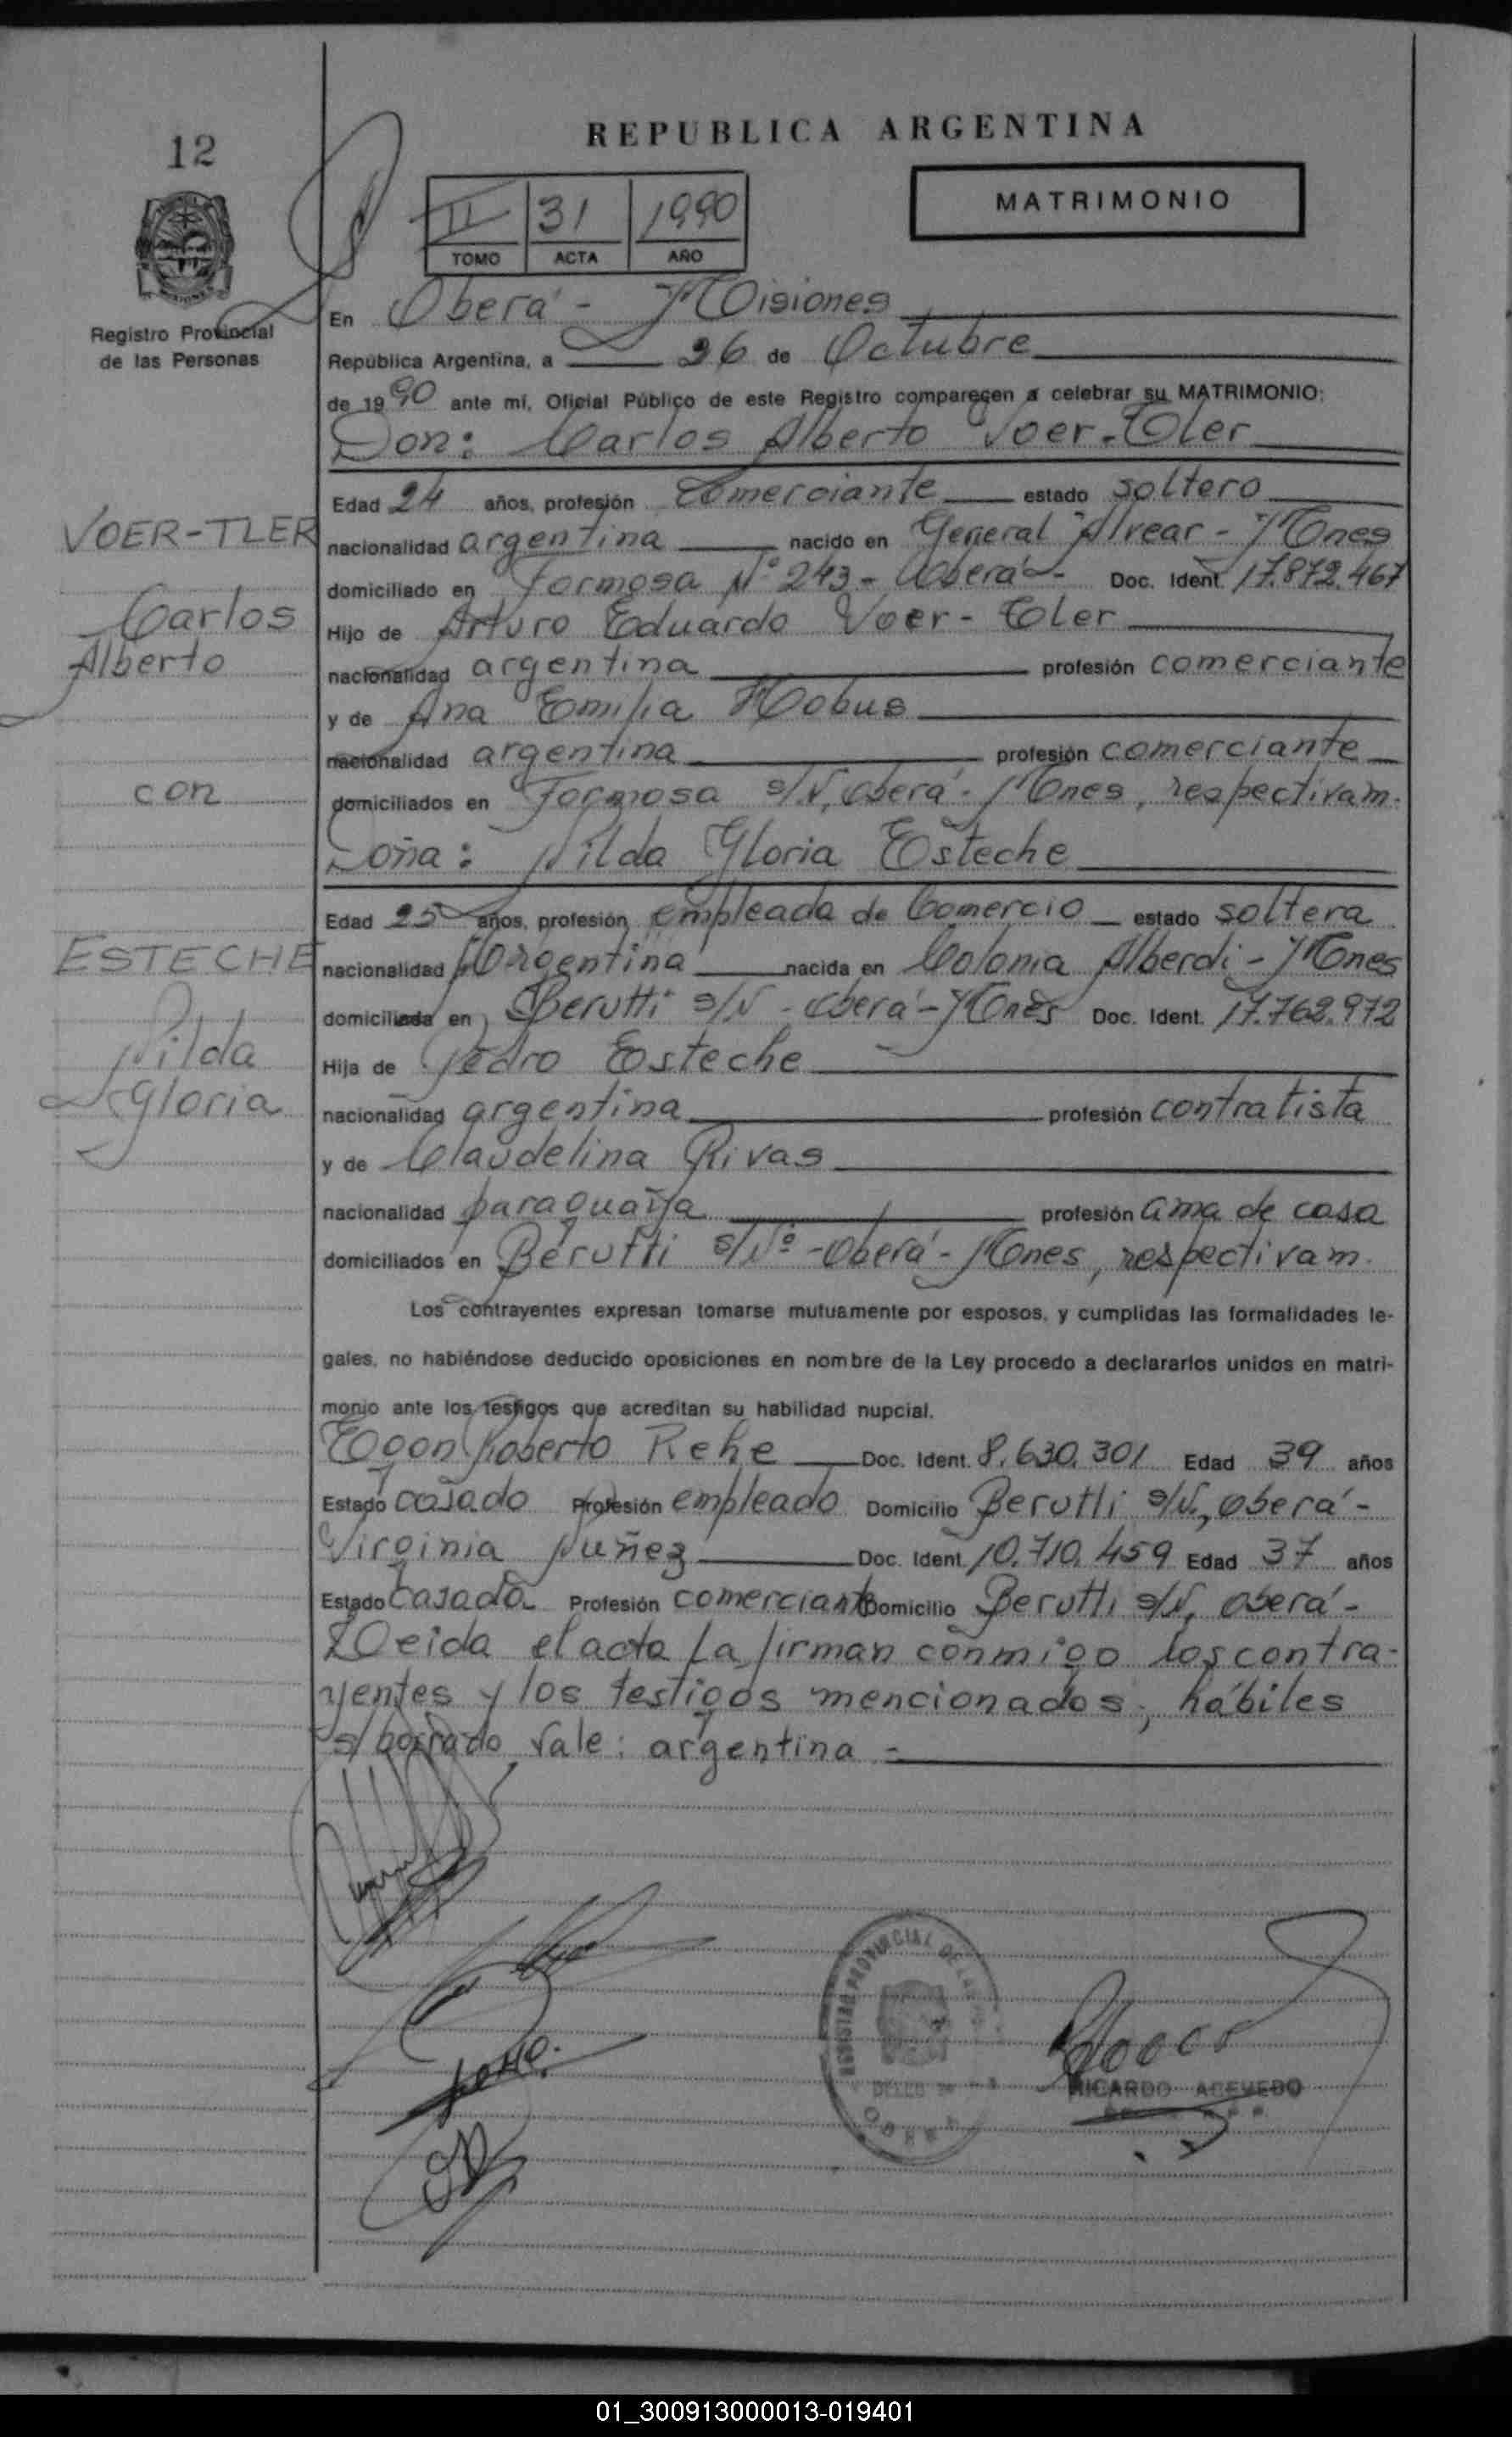 12
REPUBLICA ARGENTINA
MATRIMONIO
II 31 1990
TOMO ACTA AÑO
Registro Provincial
de las Personas
En Oberá - Misiones
República Argentina, a 26 de Octubre
de 1990 ante mí, Oficial Público de este Registro comparecen a celebrar su MATRIMONIO:
Don: Carlos Alberto Voer-Tler
Edad 24 años, profesión Comerciante estado soltero
VOER-TLER
nacionalidad argentina nacido en General Alvear - Mnes
domiciliado en Formosa Nº 243 - Oberá - Doc. Ident. 17.872.467
Carlos
Hijo de Arturo Eduardo Voer-Tler
Alberto
nacionalidad argentina profesión comerciante
y de Ana Emilia Hobus
nacionalidad argentina profesión comerciante
con
domiciliados en Formosa s/N, Oberá - Mnes, respectivam.
Doña: Nilda Gloria Esteche
Edad 25 años, profesión empleada de Comercio estado soltera
ESTECHE
nacionalidad Argentina nacida en Colonia Alberdi - Mnes
domiciliada en Berutti s/N - Oberá - Mnes Doc. Ident. 17.762.972
Nilda
Hija de Pedro Esteche
Gloria
nacionalidad argentina profesión contratista
y de Claudelina Rivas
nacionalidad paraguaya profesión ama de casa
domiciliados en Berutti s/Nº - Oberá - Mnes, respectivam.
Los contrayentes expresan tomarse mutuamente por esposos, y cumplidas las formalidades le-
gales, no habiéndose deducido oposiciones en nombre de la Ley procedo a declararlos unidos en matri-
monio ante los testigos que acreditan su habilidad nupcial.
Egon Roberto Rehe Doc. Ident. 8.630.301 Edad 39 años
Estado casado Profesión empleado Domicilio Berutti s/N, Oberá -
Virginia Nuñez Doc. Ident. 10.710.459 Edad 37 años
Estado Casada Profesión comerciante Domicilio Berutti s/N, Oberá -
Leida el acta la firman conmigo los contra-
yentes y los testigos mencionados, hábiles
s/borrado vale: argentina -
REGISTRO PROVINCIAL DE LAS
RICARDO ACEVEDO
01_300913000013-019401